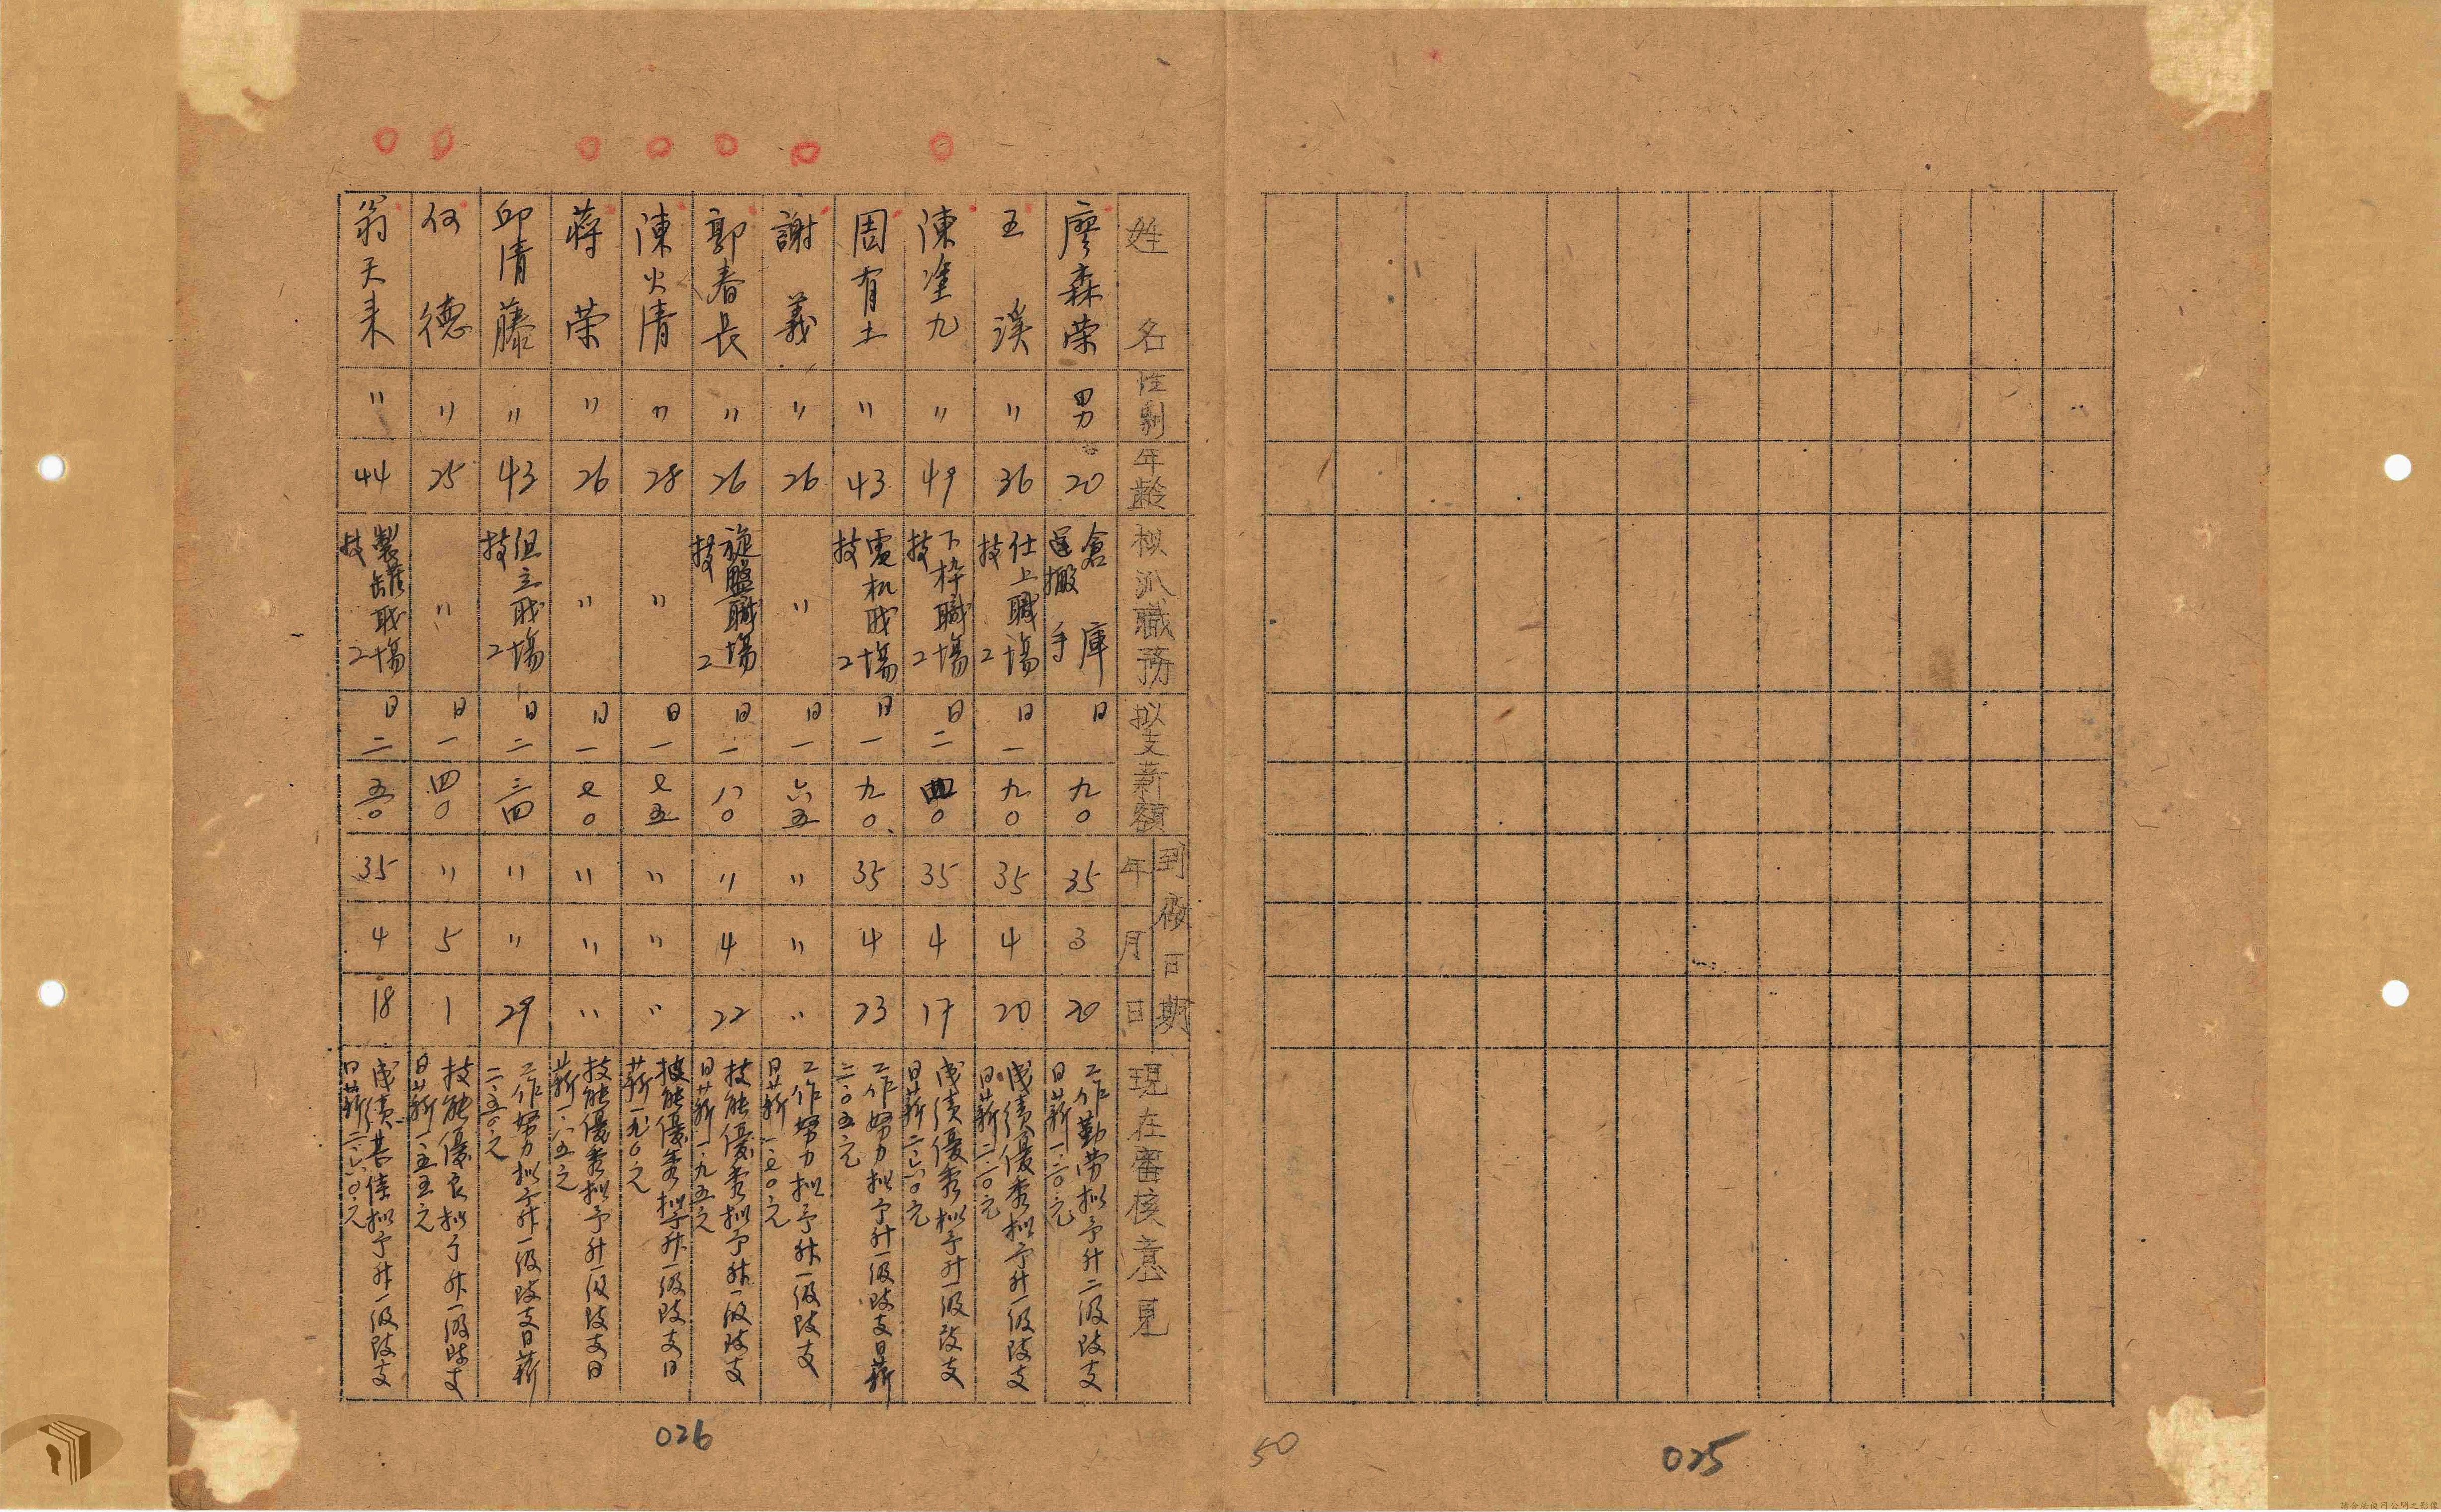 姓名
性別
年齡
擬派職務
拟支薪額
到廠日期
年
月
日
現在審核意見
廖森荣
男
20
倉庫
運搬手
日
九〇
35
3
20
工作勤劳拟予升二級改支
日薪一.一〇元
王溪
〃
36
仕上職場
技工
日一
九〇
35
4
20
成績優秀拟予升一級改支
日薪二.一〇元
陳塗九
〃
49
下枠職場
技工
日二
四〇
35
4
17
成績優秀拟予升一級改支
日薪二.六〇元
周有土
〃
43
電机职場
技工
日一
九〇
35
4
23
工作努力拟予升一級改支日薪
二.〇五元
謝義
〃
26
〃
日一
六五
〃
〃
〃
工作努力拟予升一級改支
日薪一.七〇元
郭春長
〃
26
旋盤職場
技工
日一
八〇
〃
4
22
技能優秀拟予升一級改支
日薪一.九五元
陳火清
〃
28
〃
日一
七五
〃
〃
〃
技能優秀拟予升一級改支日
薪一.九〇元
蒋荣
〃
26
〃
日一
七〇
〃
〃
〃
技能優秀拟予升一級改支日
薪一.八五元
邱清藤
〃
43
组立职場
技工
日二
三四
〃
〃
29
工作努力拟予升一級改支日薪
二.五〇元
何德
〃
25
〃
日一
四〇
〃
5
1
技能優良拟予升一級改支
日薪一.五五元
翁天来
〃
44
製罐职場
技工
日二
五〇
35
4
18
成績甚佳拟予升一級改支
日薪二.六〇元
026
50
025
請合法使用公開之影像